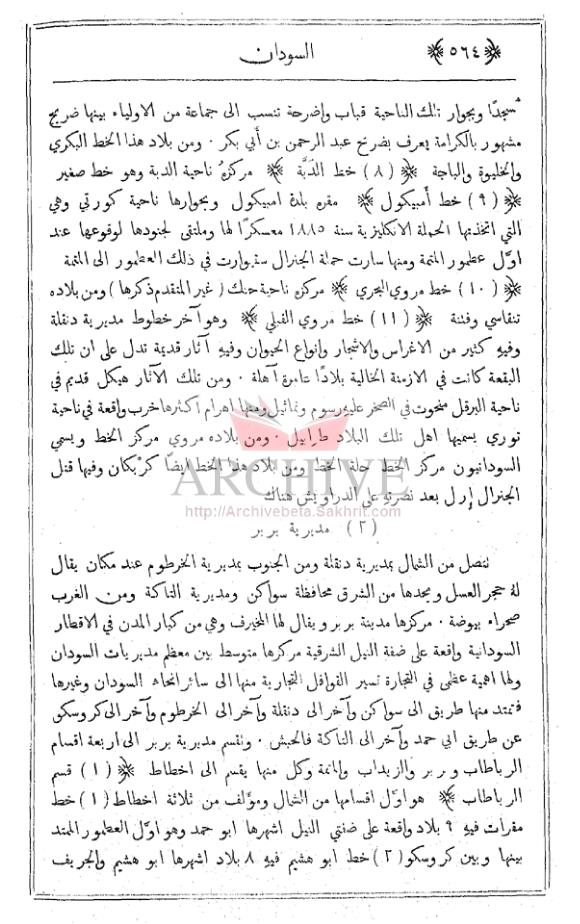 ﴿٥٦٤﴾ السودان
مسجدًا وبجوار تلك الناحية قباب واضرحة تنسب الى جماعة من الاولياء بينها ضريح
مشهور بالكرامة يعرف بضريح عبد الرحمن بن أبي بكر ٠ ومن بلاد هذا الخط البكري
والخليوة والباجة ﴿ (٨) خط الدَبَّة ﴾ مركزهُ ناحية الدبة وهو خط صغير
﴿ (٩) خط أَمبيكول ﴾ مقره بلدة امبيكول وبجوارها ناحية كورتي وهي
التي اتخذتها الحملة الانكليزية سنة ١٨٨٥ معسكرًا لها وملتقى لجنودها لوقوعها عند
اوَّل عطمور المتمة ومنها سارت حملة الجنرال ستيوارت في ذلك العطمور الى المتمة
﴿ (١٠) خط مروي البحري ﴾ مركزه ناحية حنك (غير المتقدم ذكرها) ومن بلاده
تنقاسي وفتنة ﴿ (١١) خط مروي القبلي ﴾ وهو آخر خطوط مديرية دنقلة
وفيهِ كثير من الاغراس والاشجار وانواع الحيوان وفيهِ آثار قديمة تدل على ان تلك
البقعة كانت في الازمنة الخالية بلادًا عامرة آهلة ٠ ومن تلك الآثار هيكل قديم في
ناحية البرقل منحوت في الصخر عليه رسوم وتماثيل ومنها اهرام اكثرها خرب واقعة في ناحية
نوري يسميها اهل تلك البلاد طرابيل ٠ ومن بلاده مروي مركز الخط ويسمي
السودانيون مركز الخط حلة الخط ومن بلاد هذا الخط ايضًا كربكان وفيها قتل
الجنرال إرل بعد نصرته على الدراويش هناك
ARCHIVE
http://Archivebeta.Sakhrit.com
(٢) مديرية بربر
لتصل من الشمال بمديرية دنقلة ومن الجنوب بمديرية الخرطوم عند مكان يقال
لهُ حجر العسل ويحدها من الشرق محافظة سواكن ومديرية التاكة ومن الغرب
صحراء بيوضة ٠ مركزها مدينة بربر ويقال لها المخيرف وهي من كبار المدن في الاقطار
السودانية واقعة على ضفة النيل الشرقية مركزها متوسط بين معظم مديريات السودان
ولها اهمية عظمى في التجارة تسير القوافل التجارية منها الى سائر انحاء السودان وغيرها
فتمتد منها طريق الى سواكن وآخر الى دنقلة وآخر الى الخرطوم وآخر الى كروسكو
عن طريق ابي حمد وآخر الى التاكة فالحبش ٠ وتقسم مديرية بربر الى اربعة اقسام
الرباطاب وبربر والزيداب والمتمة وكل منها يقسم الى اخطاط ﴿ (١) قسم
الرباطاب ﴾ هو اوَّل اقسامها من الشمال ومؤلف من ثلاثة اخطاط (١) خط
مقرات فيهِ ٩ بلاد واقعة على ضفتي النيل اشهرها ابو حمد وهو اوَّل العطمور الممتد
بينها وبين كروسكو (٢) خط ابو هشيم فيهِ ٨ بلاد اشهرها ابو هشيم والجريف